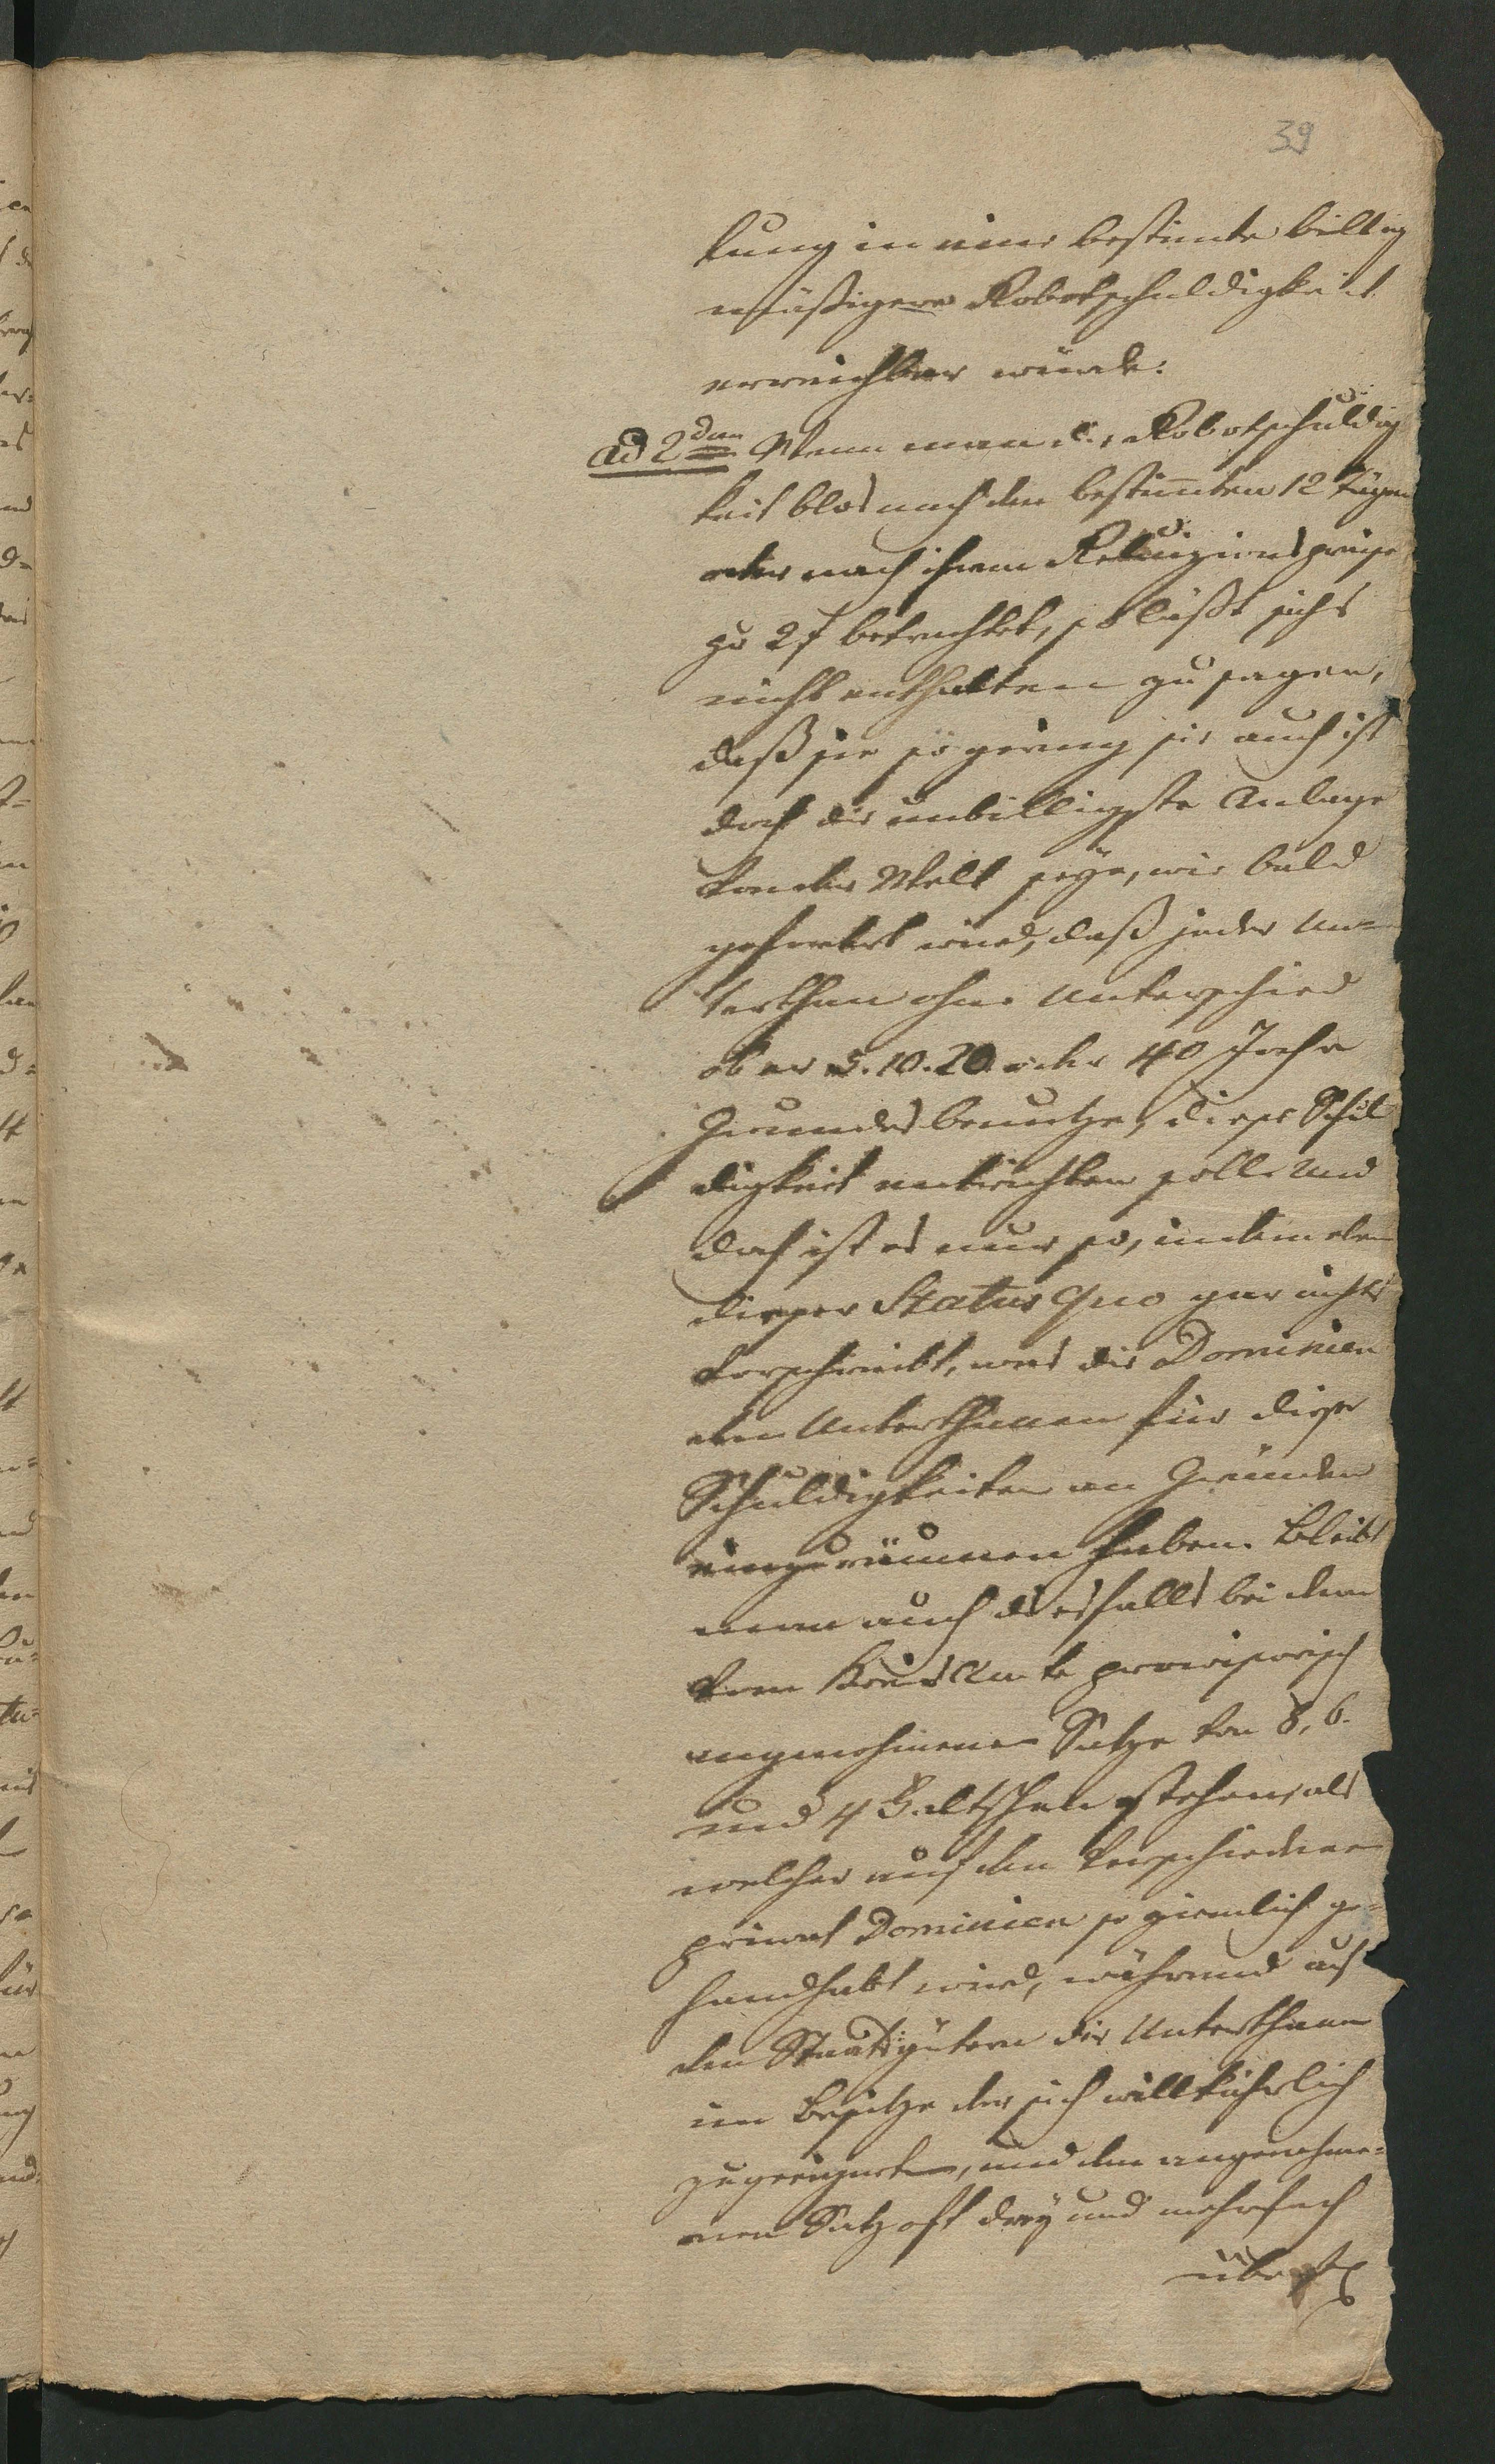 39
lung in eine bestimte billig
mäßigere Robotschuldigkeit
erreichbar würde.
ad 2dum Wenn man die Robotschuldig
keit blos nach den bestimten 12 Tägen
oder nach ihrem Reluizionspreise
zu 2 f betrachtet, so läßt sichs
nicht enthalten zu sagen,
daß sie so gering sie auch ist
doch die unbilligste Anlage
von der Welt seye, wie bald
gefordert wird, daß jeder Un=
terthan ohne Unterschied
ob er 5. 10. 20. oder 40 Joche
Grundes benutze, diese Schul
digkeit entrichten solle. Und
doch ist es nur so, indem eben
dieser Status quo gar nichts
vorschreibt, was die Dominien
den Unterthanen für diese
Schuldigkeiten an Gründen
einzuräumen haben. Bleibt
man auch diesfalls bei dem
vom KreisAmte provisorisch
angenohmenen Satze von 8, 6.
und 4 Faltschen stehen, als
welcher auf den verschiedenen
privat Dominien so ziemlich ge=
handhabt wird, während auf
den Staatsgütern die Unterthanen
im Besitze der sich willkührlich
zugeeigneten, und den angenohme=
nen Satz oft drey und mehrfach